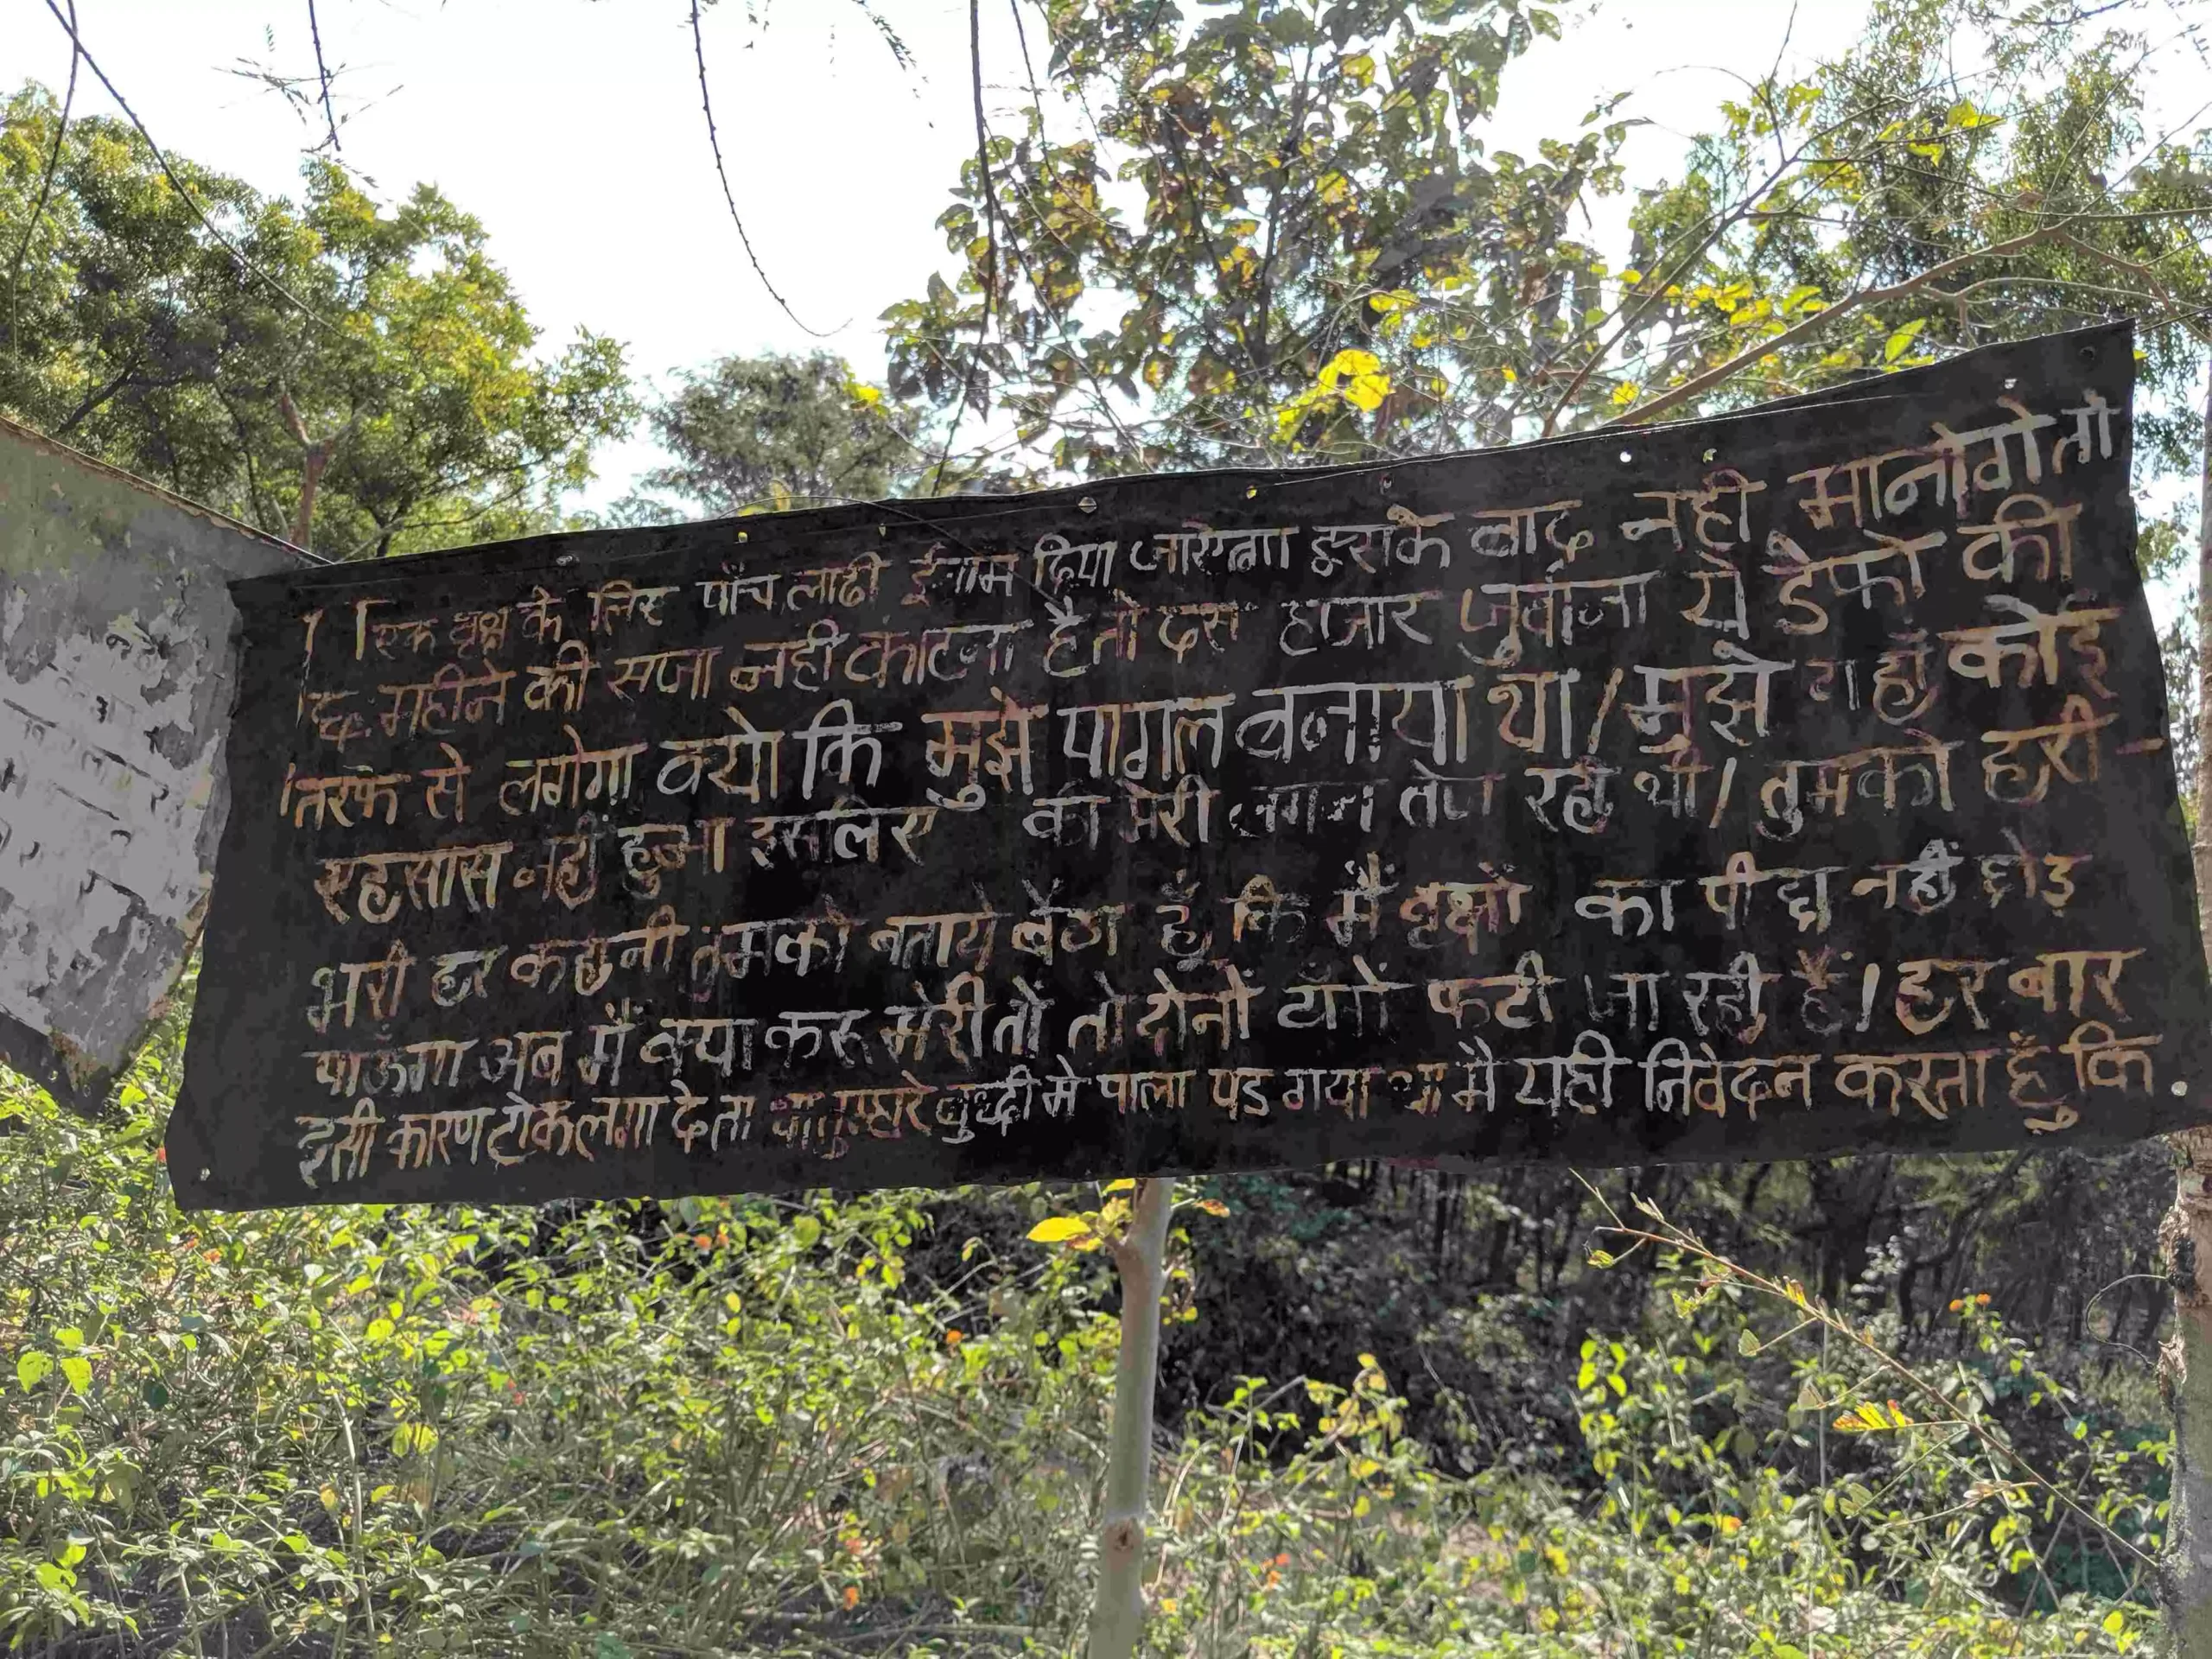 एक वृक्ष के लिए पाँच लाठी ईनाम दिया जाऐगा इसके बाद नही मानोगे तो
छः महीने की सजा नही काटना है तो दस हजार जुर्वाना ये डेफो की
तरफ से लगेगा क्यो कि मुझे पागल बनाया था / मुझे यहाँ कोई
एहसास नही हुआ इसलिए की मेरी लगन तेज रही थी / तुमको हरी-
भरी हर कहानी तुमको बताये बैठा हूँ कि मैं वृक्षों का पीछा नहीं छोड़
पाऊँगा अब मैं क्या करू मेरी तों तो दोनों टाँगें फटी जा रही हैं । हर बार
इसी कारण टोक लगा देता था तुम्हारे बुद्धी मे पाला पड गया था मै यही निवेदन करता हूँ कि